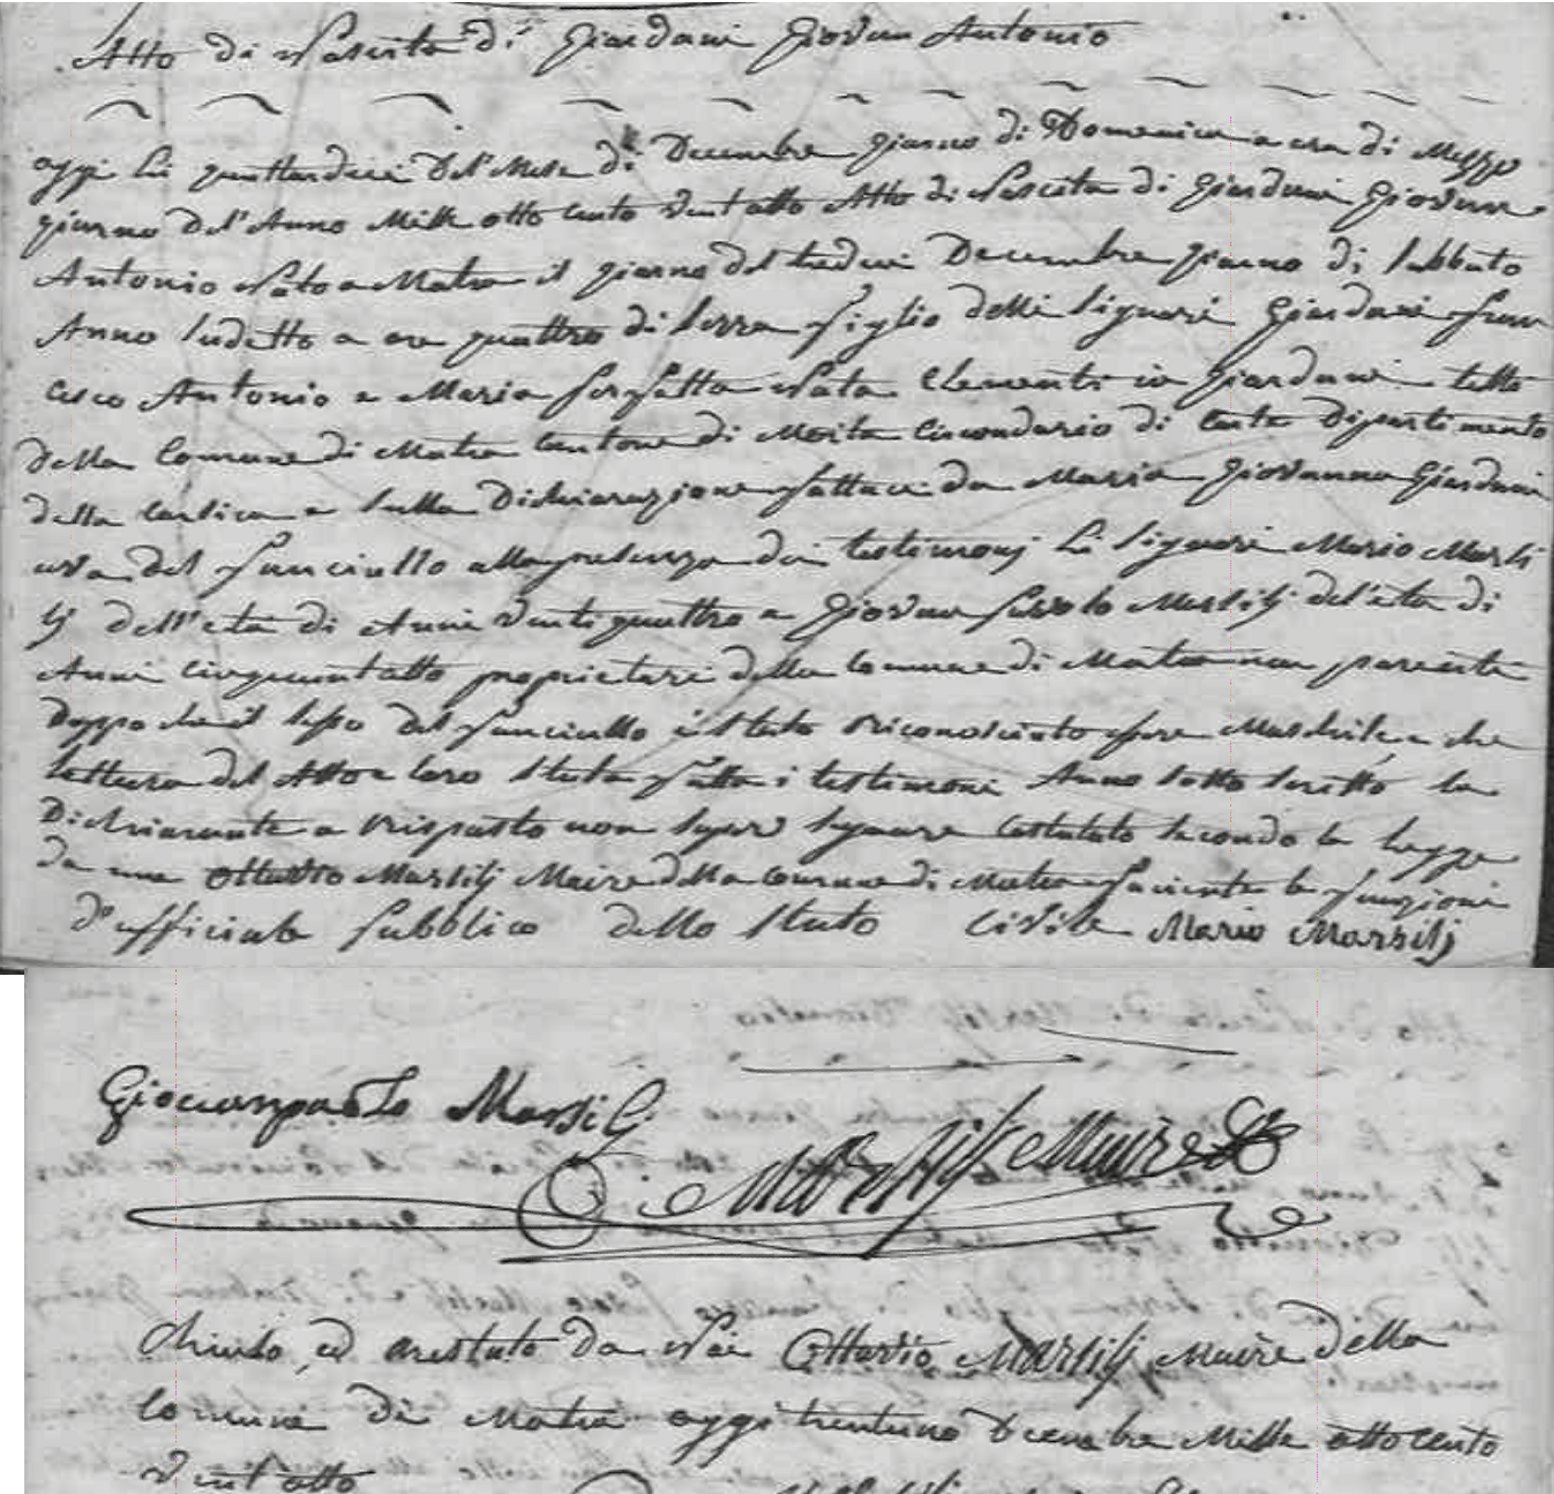 Atto di Nascita di Giardani Giovan Antonio
oggi li quattordeci Del Mese di Decembre giorno di Domenica a ora di Mezzo
giorno del'Anno Mille otto cento vent otto Atto di Nascita di Giardani Giovan
Antonio Nato a Matra il giorno del tredeci Decembre giorno di Sabbato
Anno Sudetto a ore quattro di Serra figlio delli Signori Giardani Fran
cesco Antonio e Maria Nata Clementi in Giardani tutti
della Comune di Matra Cantone di Moita Circondario di Corte Dipartimento
della Corsica e Sulla Dichiarazione fattaci da Maria Giovanna Giardani
ava del fanciullo alla presenza dei testimonj Li Signori Mario Marsi
lj dell'età di Anni venti quattro e Giovan Pavolo Marsilj del'età di
Anni cinquant otto proprietari della Comune di Matra non parenti
doppo che il sesso del fanciullo è stato riconosciuto essere Maschile e che
lettura del Atto e loro stata fatta i testimoni Anno sotto scritto la
Dichiarante a risposto non saper segnare Costatato secondo la legge
da me Ottavio Marsilj Maire della Comune di Matra faciente le funzioni
d'officiale Pubblico dello Stato Civile Mario Marsilj
Giovanpaolo Marsilj
Marsilj Maire
Chiuso ed arestato da Noi Ottavio Marsilj Maire della
Comune di Matra oggi trentuno Decembre Mille otto cento
vent otto